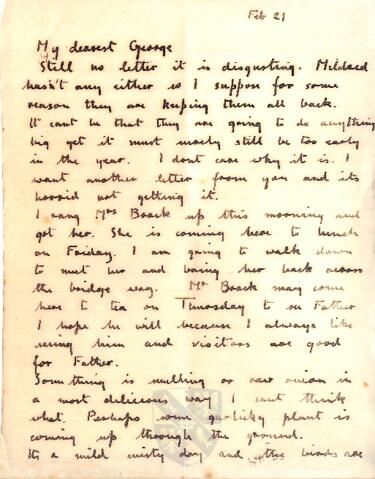 Feb 21
My dearest George
Still no letter it is disgusting. Mildred
hasn't any either so I suppose for some
reason they are keeping them all back.
It cant be that they are going to do anything
big yet it must surely still be too early
in the year. I dont care why it is. I
want another letter from you and its
horrid not getting it.
I rang Mrs Brock up this morning and
got her. She is coming here to lunch
on Friday. I am going to walk down
to meet her and bring her back across
the bridge way. Mr Brock may come
here to tea on Thursday to see Father
I hope he will because I always like
seeing him and visitors are good
for Father.
Something is smelling or raw onion in
a most delicious way I cant think
what. Perhaps some garlicky plant is
coming up through the ground.
Its a mild misty day and the birds are